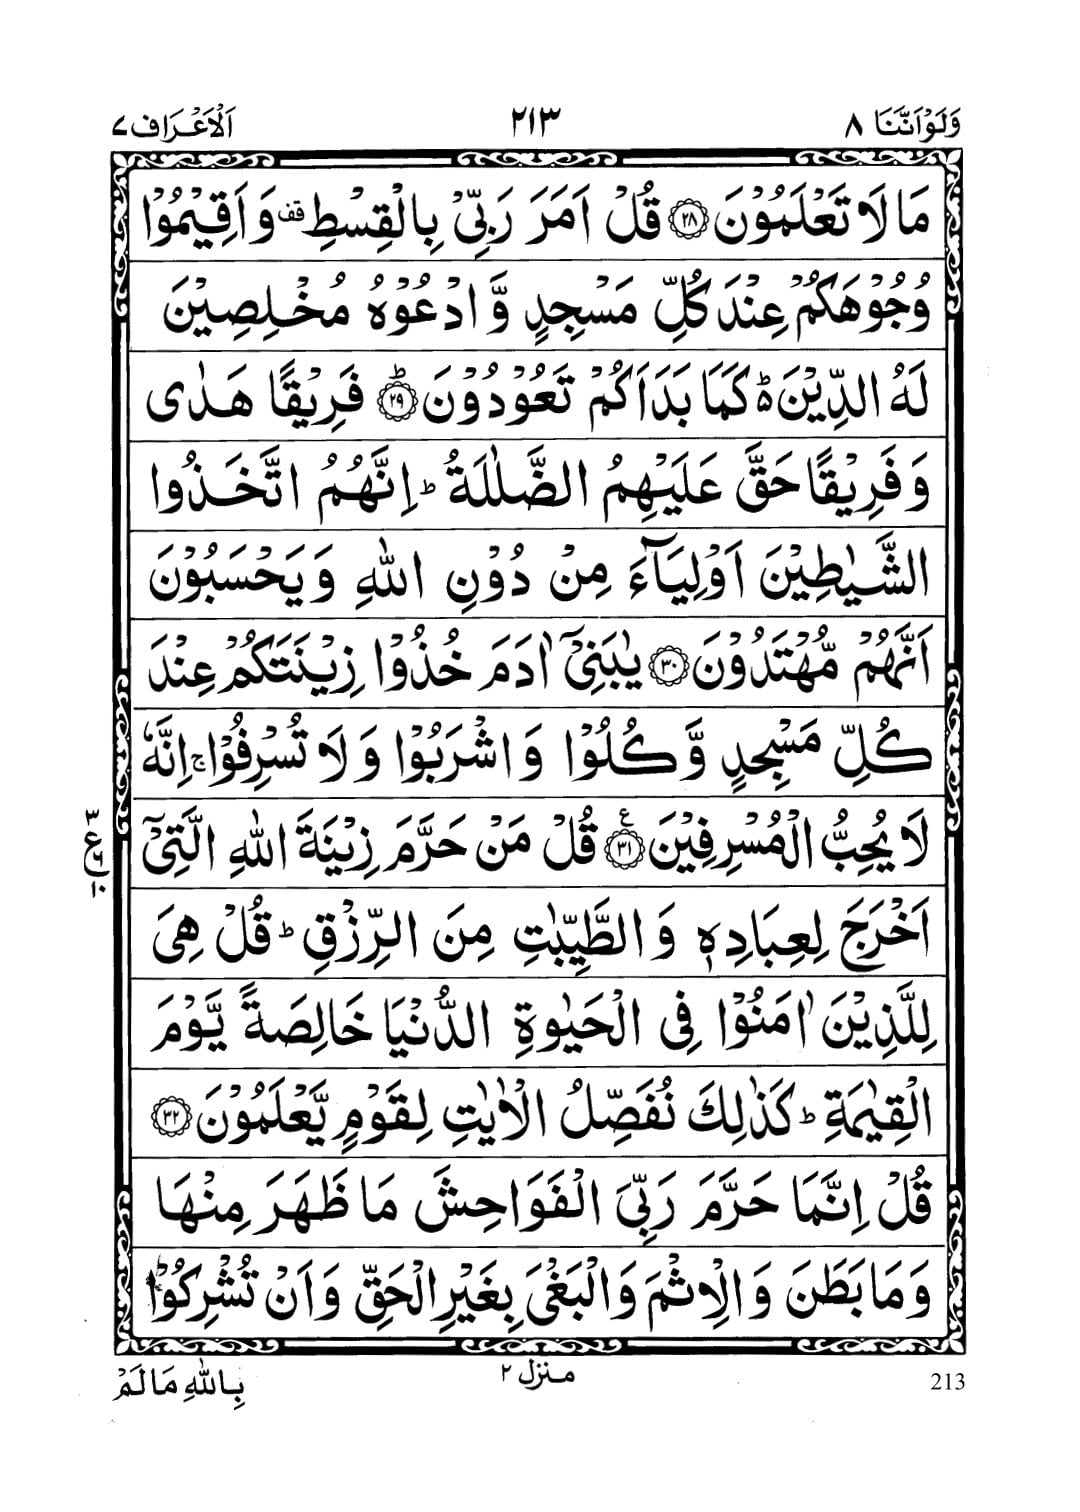 وَلَوْاَنَّنَا ٨
٢١٣
اَلْاَعْرَاف ٧
مَا لَا تَعْلَمُوْنَ ﴿٢٨﴾ قُلْ اَمَرَ رَبِّىْ بِالْقِسْطِ ۫ وَ اَقِيْمُوْا
وُجُوْهَكُمْ عِنْدَ كُلِّ مَسْجِدٍ وَّ ادْعُوْهُ مُخْلِصِيْنَ
لَهُ الدِّيْنَ ؕ كَمَا بَدَاَكُمْ تَعُوْدُوْنَ ﴿ؕ٢٩﴾ فَرِيْقًا هَدٰى
وَ فَرِيْقًا حَقَّ عَلَيْهِمُ الضَّلٰلَةُ ؕ اِنَّهُمُ اتَّخَذُوا
الشَّيٰطِيْنَ اَوْلِيَآءَ مِنْ دُوْنِ اللّٰهِ وَ يَحْسَبُوْنَ
اَنَّهُمْ مُّهْتَدُوْنَ ﴿٣٠﴾ يٰبَنِىْٓ اٰدَمَ خُذُوْا زِيْنَتَكُمْ عِنْدَ
كُلِّ مَسْجِدٍ وَّ كُلُوْا وَ اشْرَبُوْا وَ لَا تُسْرِفُوْا ۚ اِنَّهٗ
لَا يُحِبُّ الْمُسْرِفِيْنَ ﴿٣١﴾ ع قُلْ مَنْ حَرَّمَ زِيْنَةَ اللّٰهِ الَّتِىْٓ
٣
ع ٦
١٠
اَخْرَجَ لِعِبَادِهٖ وَ الطَّيِّبٰتِ مِنَ الرِّزْقِ ؕ قُلْ هِىَ
لِلَّذِيْنَ اٰمَنُوْا فِى الْحَيٰوةِ الدُّنْيَا خَالِصَةً يَّوْمَ
الْقِيٰمَةِ ؕ كَذٰلِكَ نُفَصِّلُ الْاٰيٰتِ لِقَوْمٍ يَّعْلَمُوْنَ ﴿٣٢﴾
قُلْ اِنَّمَا حَرَّمَ رَبِّىَ الْفَوَاحِشَ مَا ظَهَرَ مِنْهَا
وَ مَا بَطَنَ وَ الْاِثْمَ وَ الْبَغْىَ بِغَيْرِ الْحَقِّ وَ اَنْ تُشْرِكُوْا
213
منزل ٢
بِاللّٰهِ مَا لَمْ